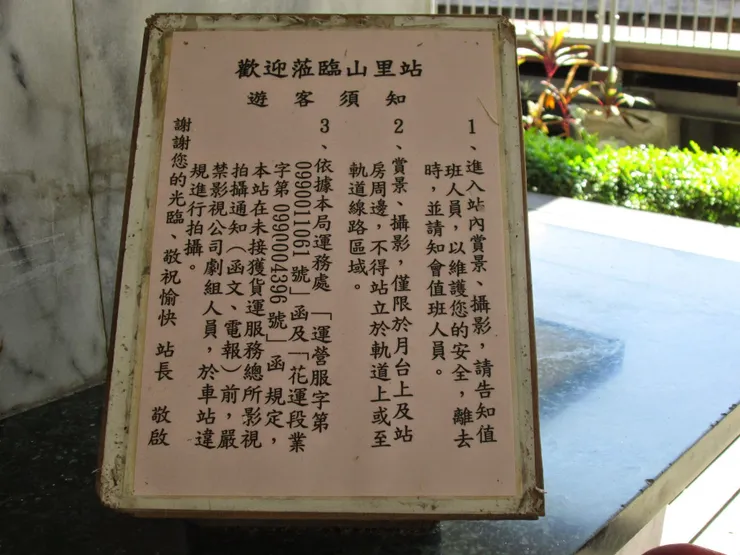 歡迎蒞臨山里站
遊客須知
1、進入站內賞景、攝影，請告知值
班人員，以維護您的安全，離去
時，並請知會值班人員。
2、賞景、攝影，僅限於月台上及站
房周邊，不得站立於軌道上或至
軌道線路區域。
3、依據本局運務處「運營服字第
0990011061號」函及「花運段業
字第0990004396號」函 規定，
本站在未接獲貨運服務總所影視
拍攝通知（函文、電報）前，嚴
禁影視公司劇組人員，於車站違
規進行拍攝。
謝謝您的光臨、敬祝愉快 站長 敬啟